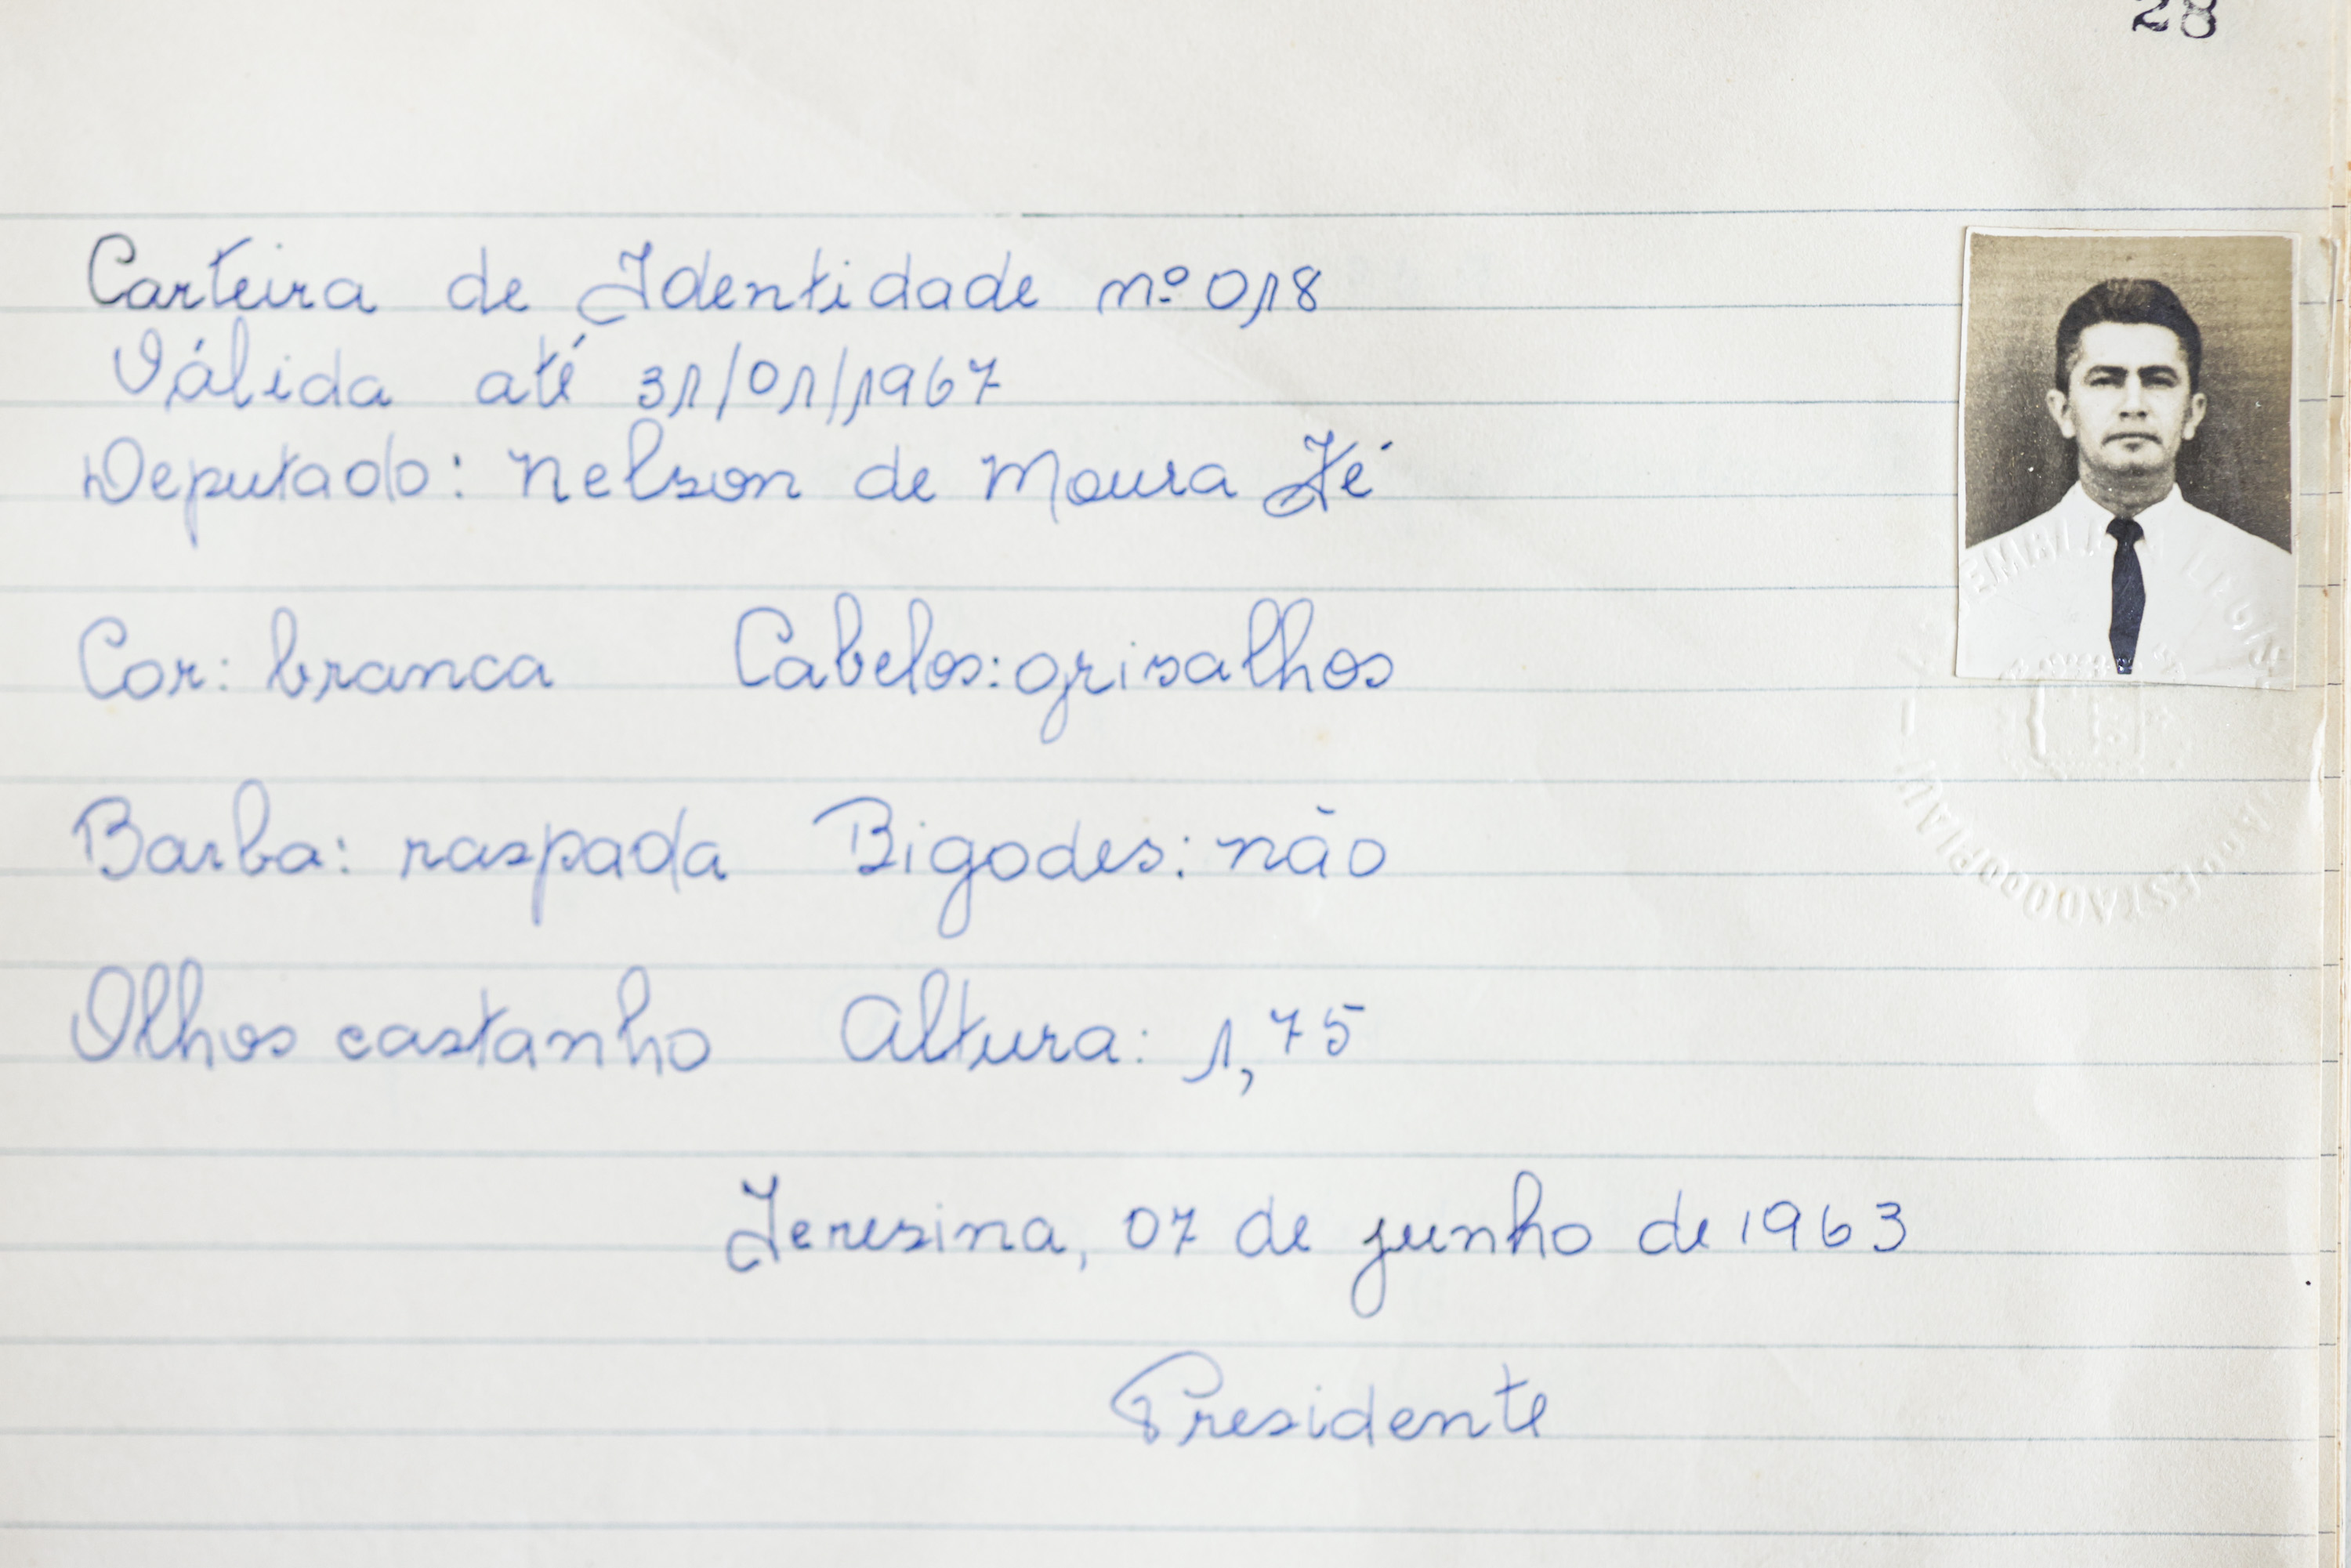 28
Carteira de Identidade nº 018
Válida até 31/01/1967
Deputado: Nelson de Moura Fé
Cor: branca Cabelos: grisalhos
Barba: raspada Bigodes: não
Olhos castanho Altura: 1,75
Teresina, 07 de junho de 1963
Presidente
ESTADO DO PIAUÍ